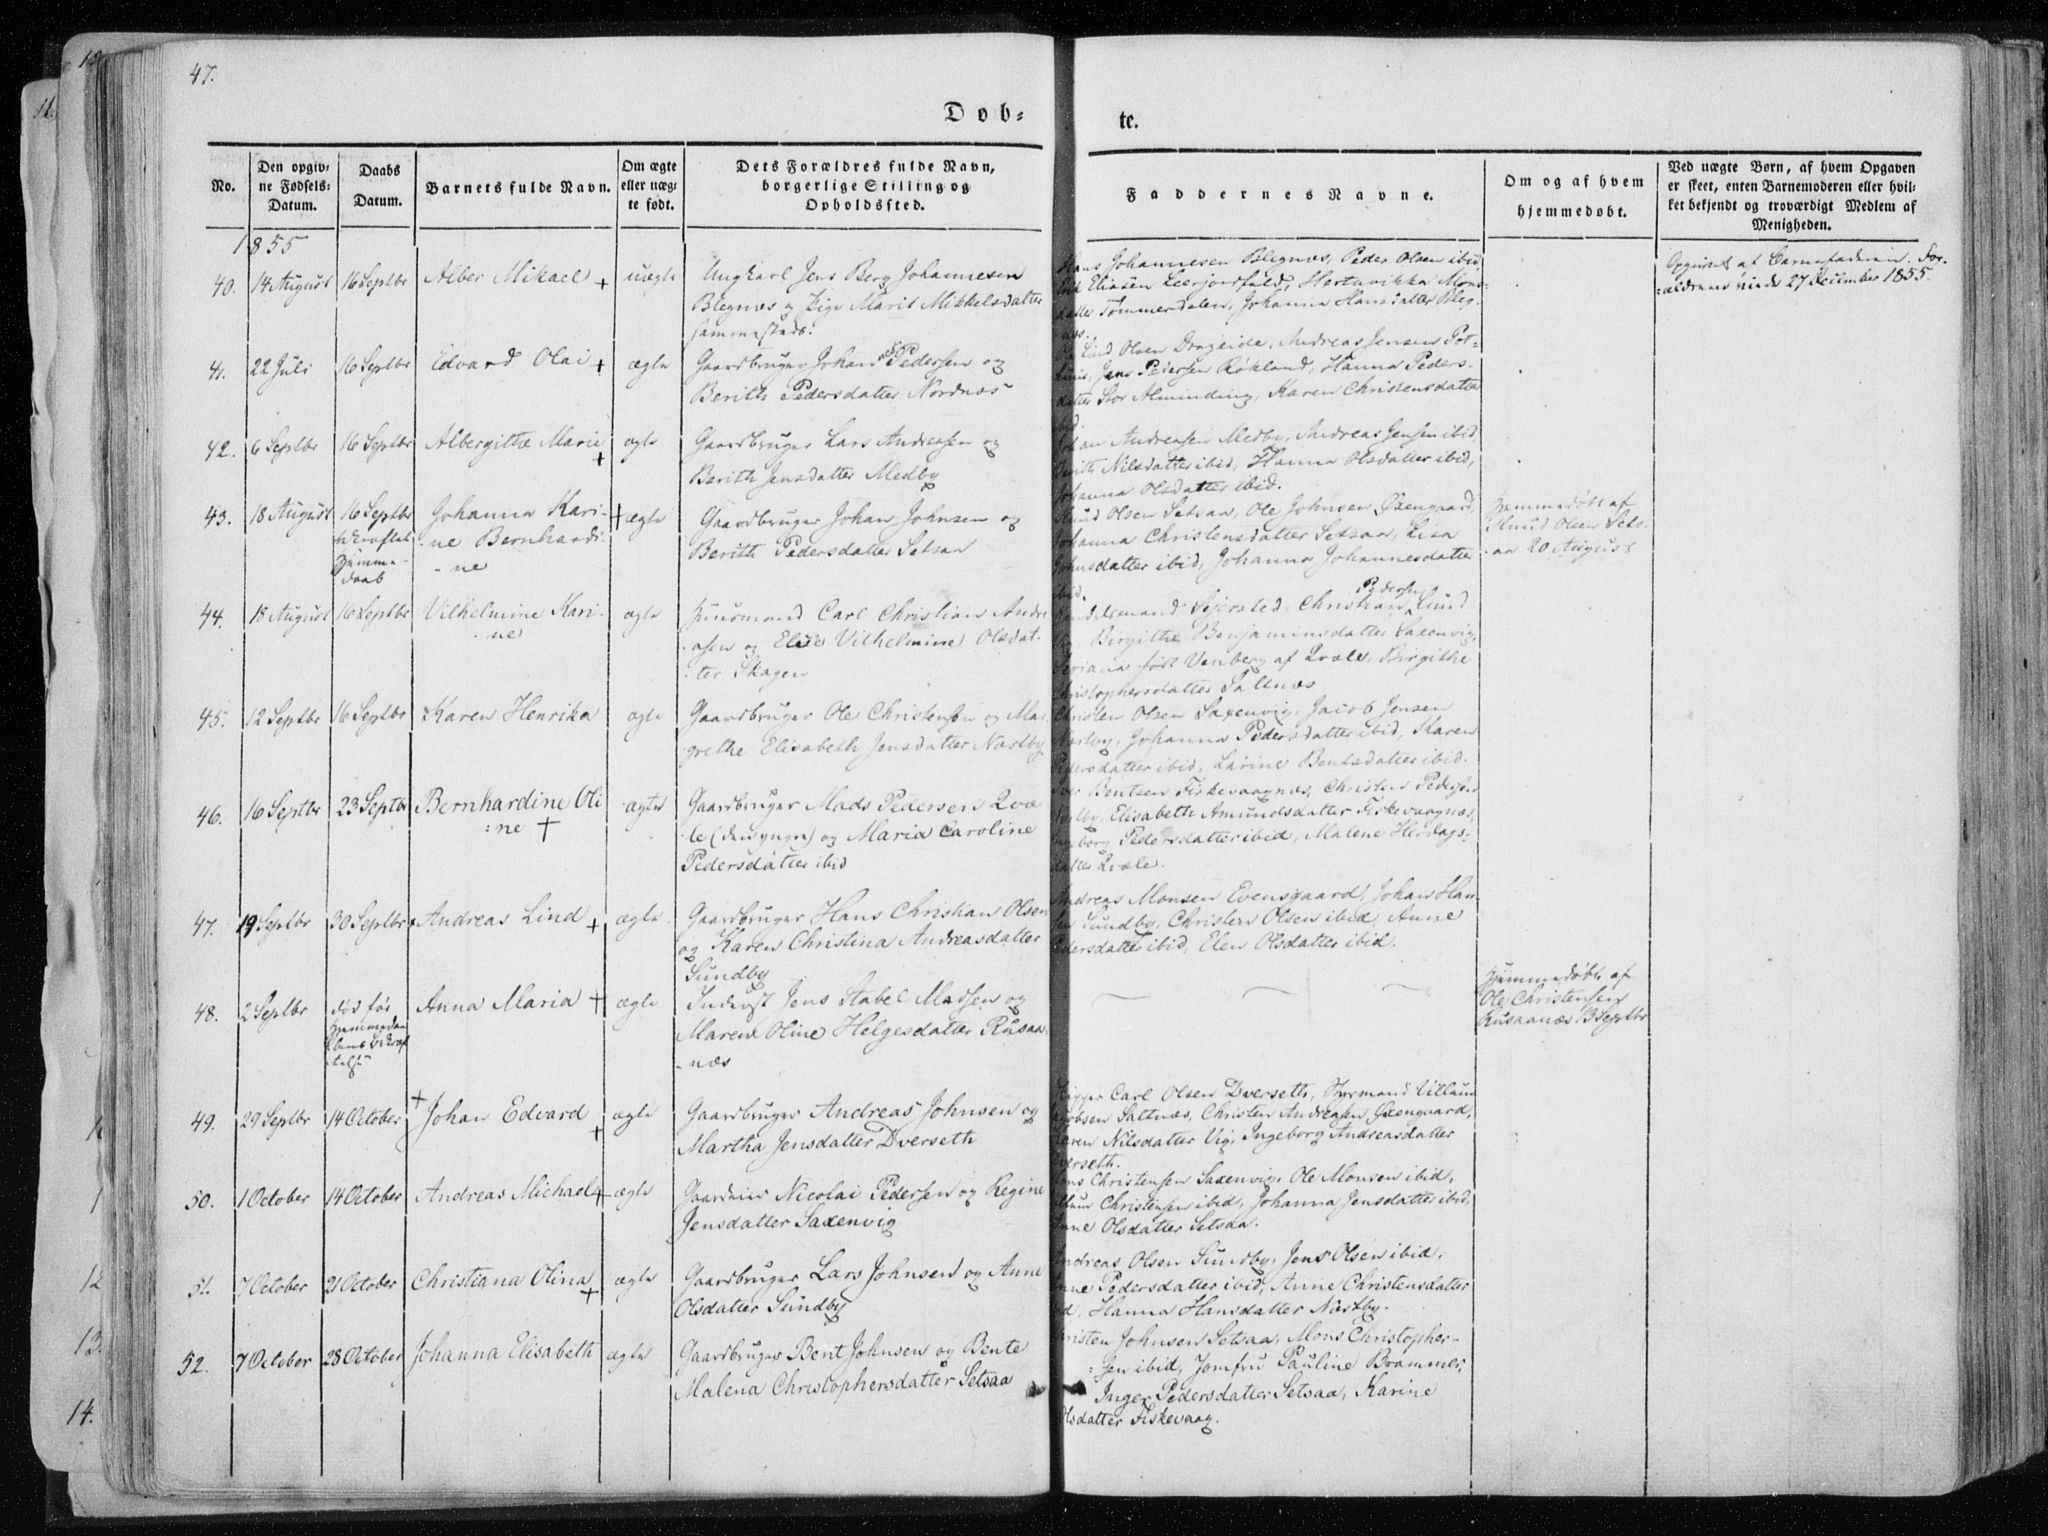 47.
Døb-
te.
No.
Den opgiv-
ne Fødsels-
Datum.
Daabs
Datum.
Barnets fulde Navn.
Om ægte
eller uæg-
te født.
Dets Forældres fulde Navn,
borgerlige Stilling og
Opholdssted.
Faddernes Navne.
Om og af hvem
hjemmedøbt.
Ved uægte Børn, af hvem Opgaven
er skeet, enten Barnemoderen eller hvil-
ket bekjendt og troværdigt Medlem af
Menigheden.
1855
40. 14 August 16 Septbr Alber Mikael + uægte
Ungkarl Jens Berg Johannesen
Blegnæs og Pige Marit Mikkelsdatter
sammesteds.
Hans Johannesen Blegnæs, Peder Olsen ibid
Eliasen Leerjordfald,
Tømmerdalen, Johanna Hansdatter Bleg-
Opgivet af Barnefaderen. For-
ældrene viede 27 December 1855.
41. 22 Juli 16 Septbr Edvard Olai + ægte
Gaardbruger Johan Pedersen og
Berith Pedersdatter Nordnæs
Lind Olsen Drageide, Andreas Jensen Pot-
Jens Peiersen Røkland, Hanna Peders-
datter Stor Alminding, Karen Christensdatter
42. 6 Septbr 16 Septbr Albergitha Marie + ægte
Gaardbruger Lars Andreasen og
Berith Jensdatter Medby
Andreasen Medby, Andreas Jensen ibid,
Berith Nilsdatter ibid, Hanna Olsdatter ibid,
Johanna Olsdatter ibid.
43. 18 August 16 Septbr Johanna Kari- + ægte
bekræftet
Hjemme-
daab
-ne Bernhardi-
-ne
Gaardbruger Johan Johnsen og
Berith Pedersdatter Setsaa
Knud Olsen Setsaa, Ole Johnsen Øxengaard,
Johanna Christensdatter Setsaa, Lisa
Johnsdatter ibid, Johanna Johannesdatter
ibid.
Hjemmedøbt af
Knud Olsen Sets-
-aa 20 August
44. 18 August 16 Septbr Vilhelmine Kari-
-ne
ægte
Huusmand Carl Christian Andre
-asen og Elise Vilhelmine Olsdat-
-ter Skagen
Pedersen
Handelsmand Sejersted, Christian Lund
Birgithe Benjaminsdatter Saxenvig,
født Venberg af Qvale, Birgithe
Christophersdatter Saltnæs
45. 12 Septbr 16 Septbr Karen Henrika ægte
Gaardbruger Ole Christensen og Mar-
grethe Elisabeth Jensdatter Næstby
Christen Olsen Saxenvig, Jacob Jensen
Næstby, Johanna Pedersdatter ibid, Karen
Pedersdatter ibid, Larine Bentsdatter ibid.
46. 16 Septbr 23 Septbr Bernhardine Oli
:ne +
ægte
Gaardbruger Mads Pedersen Qvæ
-le (den yngre) og Maria Caroline
Pedersdatter ibid
Bentsen Fiskevaagnæs, Christen Pedersen
Elisabeth Amundsdatter Fiskevaagnæs,
Ingeborg Pedersdatter ibid, Malene Herdags-
datter Qvæle.
47. 19 Septbr 30 Septbr Andreas Lind + ægte
Gaardbruger Hans Christian Olsen
og Karen Christina Andreasdatter
Sundby
Andreas Monsen Evensgaard, Johan Han-
sen Sundby, Christen Olsen ibid, Anne
Pedersdatter ibid, Elen Olsdatter ibid.
48. 2 Septbr død før
Hjemmedaa
bens Bekræf
telse
Anna Maria + ægte
Inderst Jens Stabel Madsen og
Maren Oline Helgesdatter Rusaa-
-næs
Hjemmedøbt af
Ole Christensen
Rusaanæs 3 Septbr
49. 29 Septbr 14 October + Johan Edvard + ægte
Gaardbruger Andreas Johnsen og
Martha Jensdatter Dverseth
Carl Olsen Dverseth, Styrmand Villum
Jacobsen Saltnæs, Christen Andreasen Øxengaard,
Karen Nilsdatter Vig, Ingeborg Andreasdatter
Dverseth.
50. 1 October 14 October Andreas Michael + ægte
Gaardeier Nicolai Pedersen og Regine
Jensdatter Saxenvig
Mons Christensen Saxenvig, Ole Monsen ibid,
Villum Christensen ibid, Johanna Jensdatter ibid,
Anne Olsdatter Setsaa.
51. 7 October 21 October Christiana Olina + ægte
Gaardbruger Lars Johnsen og Anne
Olsdatter Sundby
Andreas Olsen Sundby, Jens Olsen ibid,
Anne Pedersdatter ibid, Anne Christensdatter
ibid, Hanna Hansdatter Næstby.
52. 7 October 28 October Johanna Elisabeth ægte
Gaardbruger Bent Johnsen og Bente
Malena Christophersdatter Setsaa
Christen Johnsen Setsaa, Mons Christopher-
-sen ibid, Jomfru Pauline Brammer,
Inger Pedersdatter Setsaa, Karine
Olsdatter Fiskevaag.
12
13.
14.